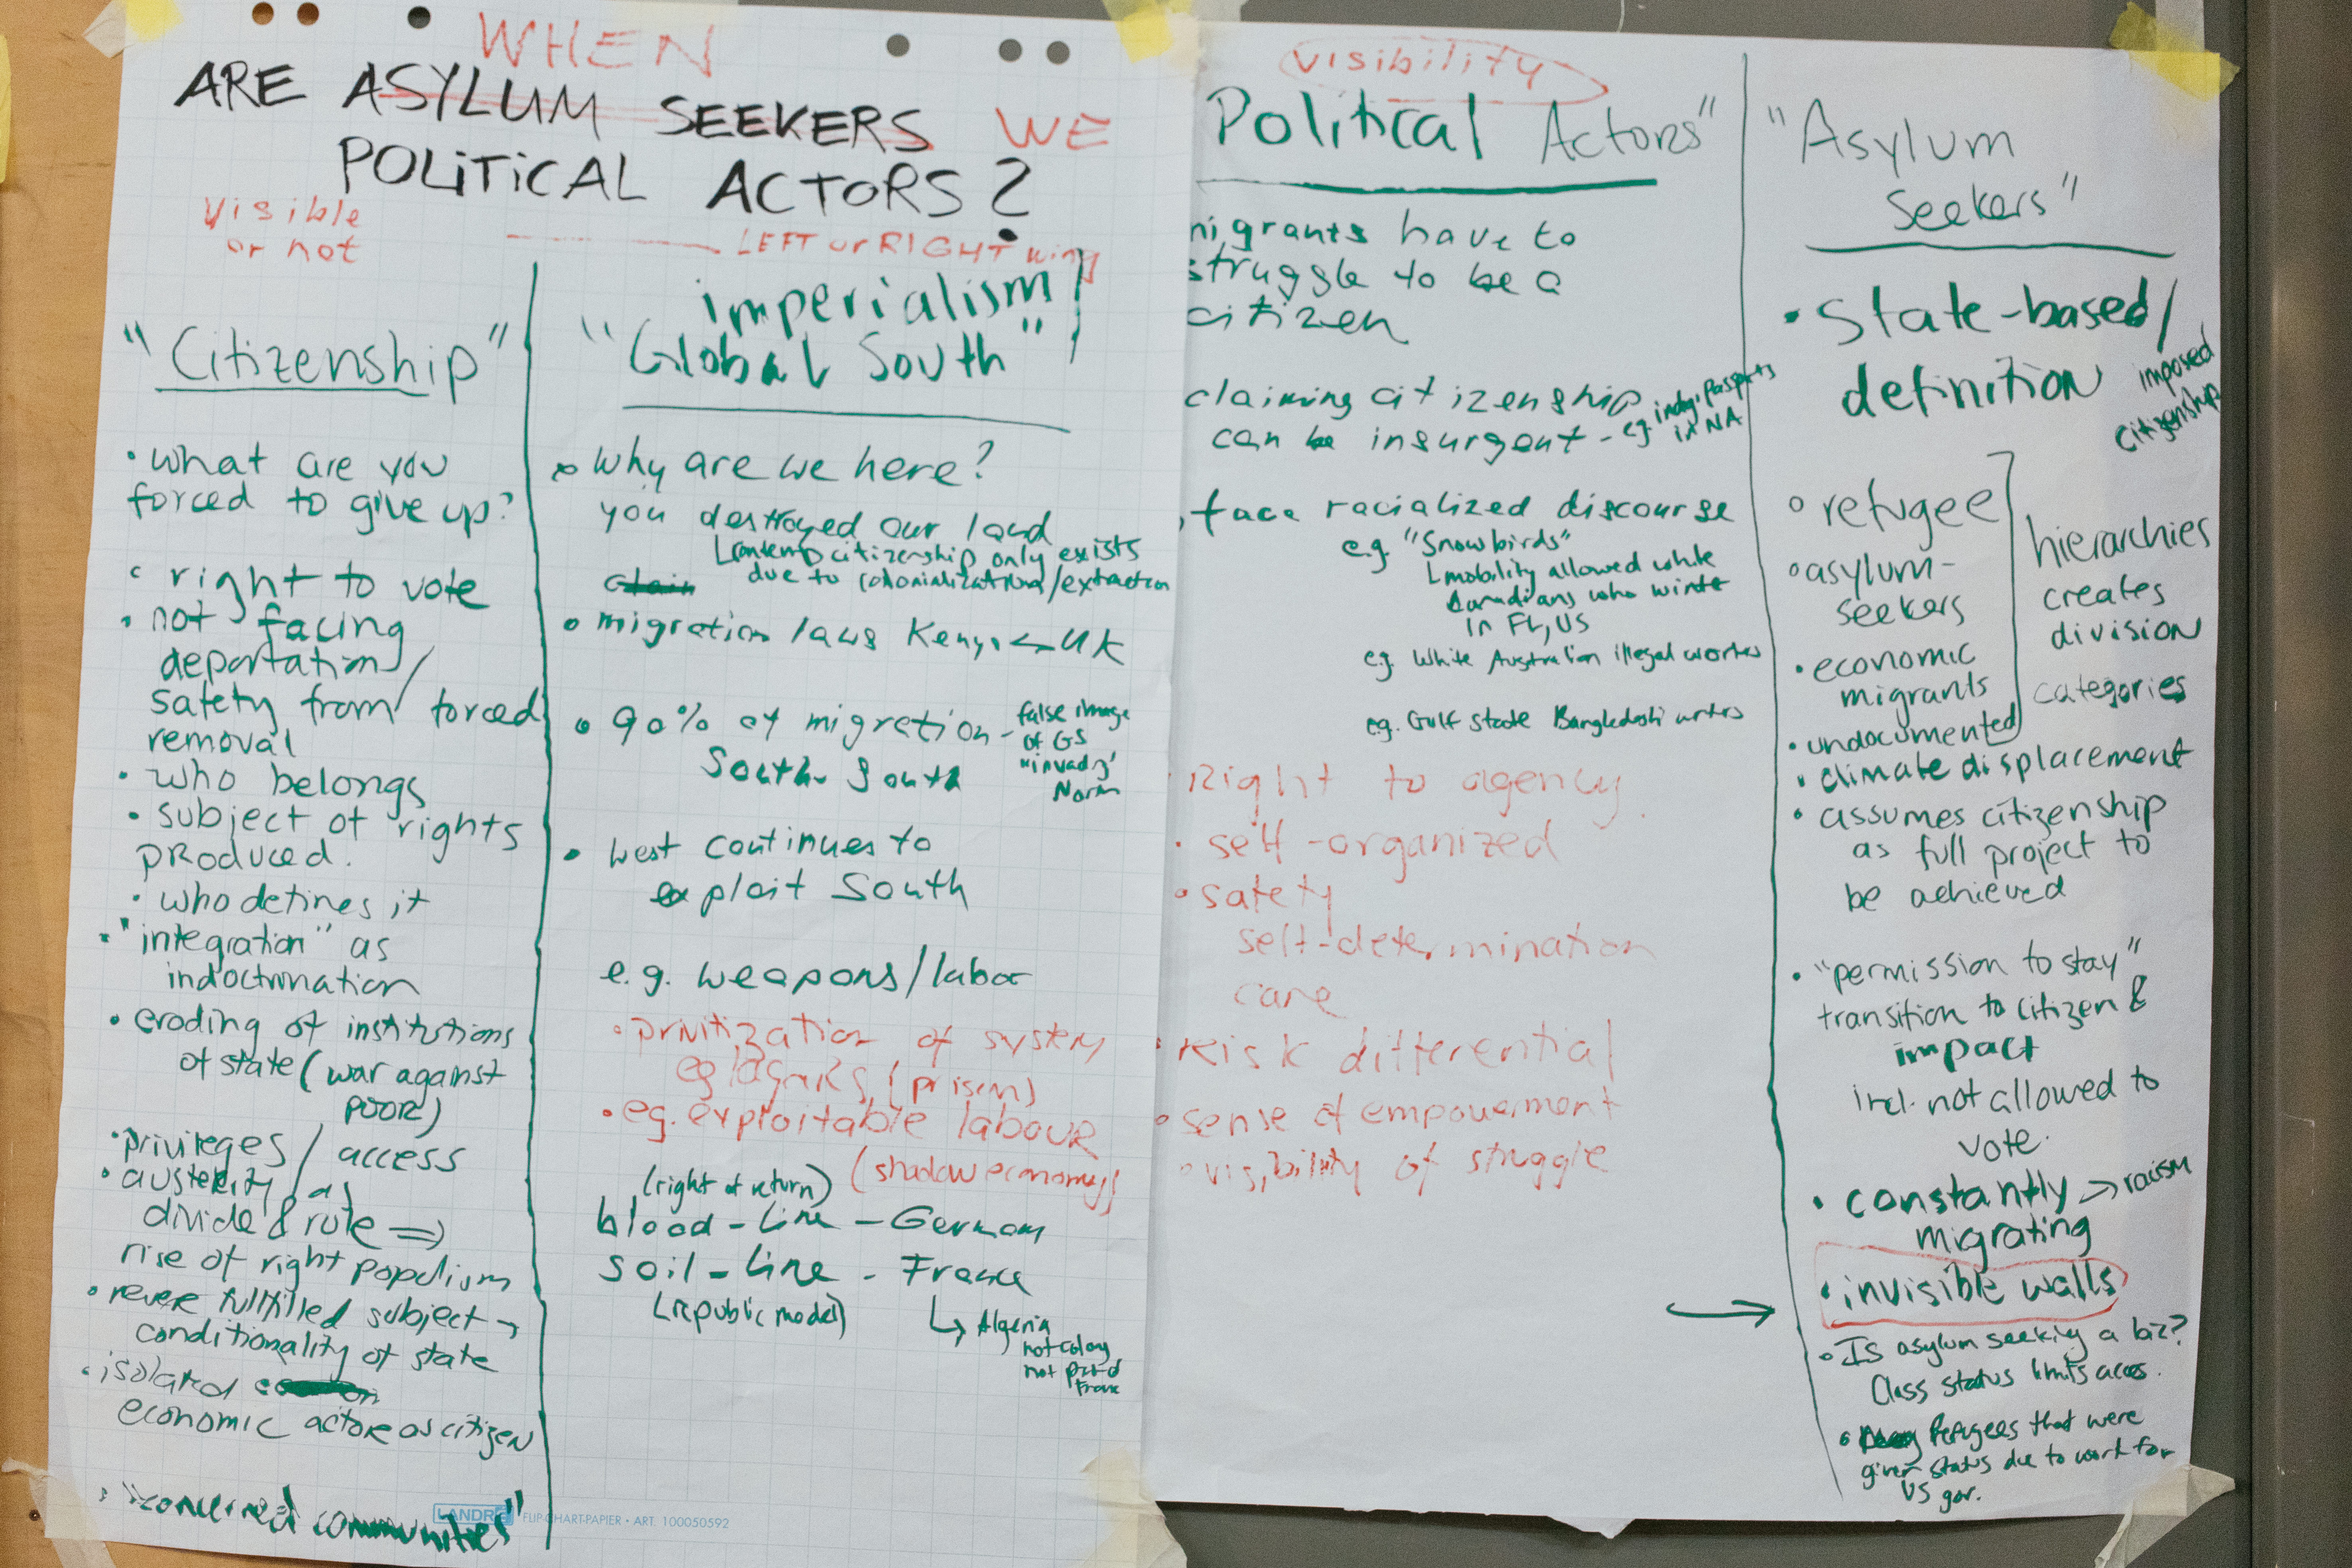 WHEN
ARE ASYLUM SEEKERS WE
POLITICAL ACTORS?
visible
or not
LEFT or RIGHT wing
"Citizenship"
• what are you
forced to give up?
• right to vote
• not facing
deportation/
safety from forced
removal
• who belongs
• subject of rights
produced.
• who defines it
• "integration" as
indoctrination
• eroding of institutions
of state (war against
poor)
• privileges / access
• austerity as
divide & rule ⇒
rise of right populism
• never fullfilled subject →
conditionality of state
• isolated
economic actor as citizen
• "concerned communities"
LANDRÉ FLIP-CHART-PAPIER • ART. 100050592
imperialism/
"Global South"
• Why are we here?
you destroyed our land
citizenship only exists
due to colonialization/extraction
claim
• migration laws Kenya UK
• 90% of migration - false image
South South of GS
"invadg'
North
• West continues to
exploit South
e.g. weapons/labor
• privitization of system
eg (prison)
• eg. exploitable labour
(shadow economy)
(right of return)
blood-line - German
soil-line - France
(republic model)
↳ Algeria
not colony
not part of
France
visibility
Political Actors"
migrants have to
struggle to be a
citizen
claiming citizenship
can be insurgent - e.g. indig. passports
in NA
• face racialized discourse
e.g. "Snowbirds"
mobility allowed white
Canadians who winter
in FL, US
e.g. White Australian illegal workers
e.g. Gulf State Bangladeshi
• Right to agency
• self-organized
• safety
self-determination
care
• Risk differential
• sense of empowerment
• visibility of struggle
"Asylum
Seekers"
• State-based/
definition imposed
citizenship
• refugee
• asylum-
seekers
• economic
migrants
• undocumented
hierarchies
creates
division
categories
• climate displacement
• assumes citizenship
as full project to
be achieved
• "permission to stay"
transition to citizen &
impact
incl. not allowed to
vote.
• constantly → racism
migrating
→ • invisible walls
• Is asylum seeking a biz?
Class status limits access.
• Refugees that were
given status due to work for
US gov.